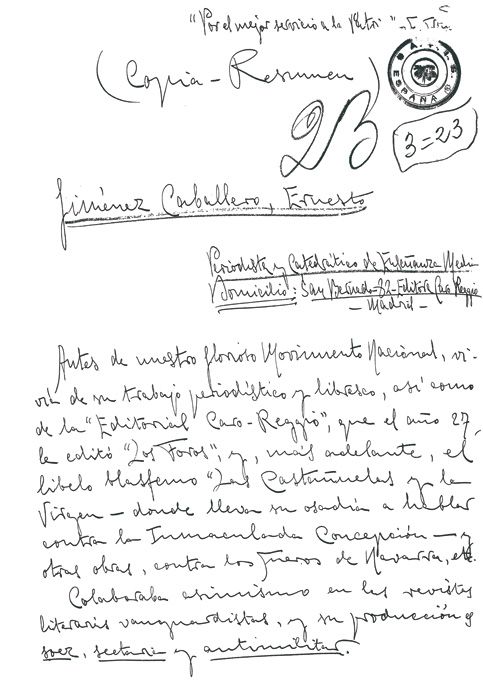 "Por el mejor servicio a la Patri
(Copia-Resumen)
A.T.E.
ESPAÑA
2B
3=23
Jiménez Caballero, Ernesto
Periodista y Catedrático de Enseñanza Medi
Domicilio: San Bernardo-82-Editora Caro Reggio
- Madrid -
Antes de nuestro glorioso Movimiento Nacional, vi-
vía de su trabajo periodístico y libresco, así como
de la "Editorial Caro-Reggio", que el año 27,
le editó "Los Toros", y, más adelante, el
libelo blasfemo "Las Castañuelas y la
Virgen - donde lleva su osadía a hablar
contra la Inmaculada Concepción - y
otras obras, contra los Fueros de Navarra, etc.
Colaboraba asimismo en las revistas
literaris vanguardistas, y su producción e
soez, sectaria y antimilitar.